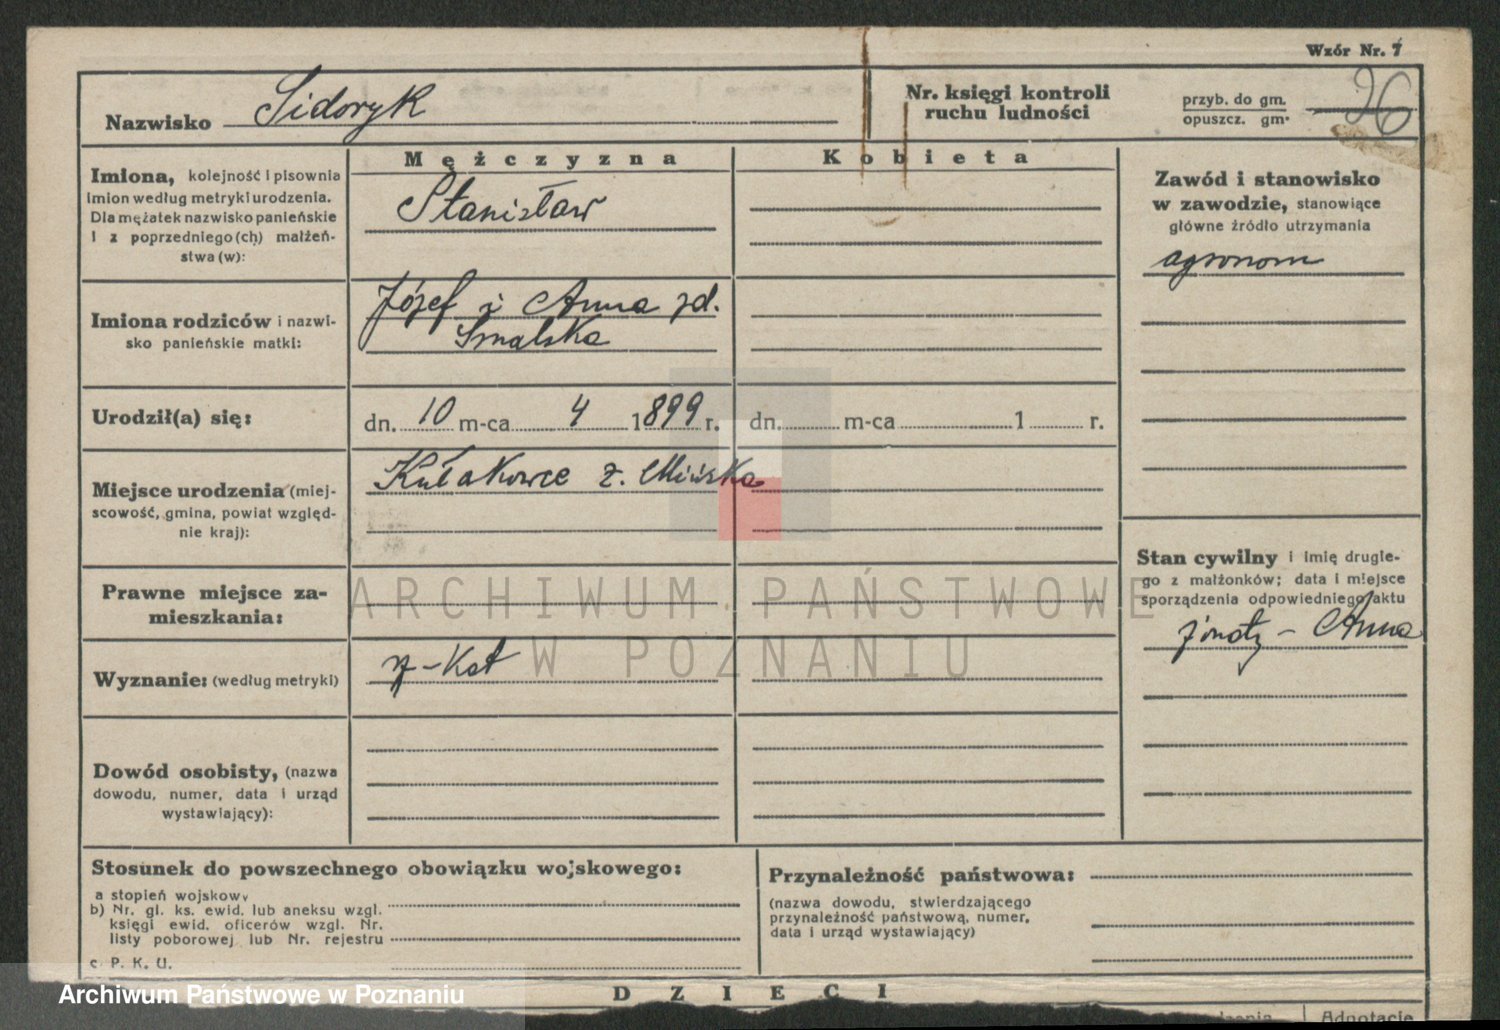 Wzór Nr. 7
Nazwisko Sidoryk
Nr. księgi kontroli
ruchu ludności
przyb. do gm.
opuszcz. gm.
26
Mężczyzna
Kobieta
Imiona, kolejność i pisownia
imion według metryki urodzenia.
Dla mężatek nazwisko panieńskie
i z poprzedniego(ch) małżeń-
stwa(w):
Stanisław
Zawód i stanowisko
w zawodzie, stanowiące
główne źródło utrzymania
agronom
Imiona rodziców i nazwi-
sko panieńskie matki:
Józef i Anna zd.
Smalska
Urodził(a) się:
dn. 10 m-ca 4 1899 r.
dn. m-ca 1 r.
Miejsce urodzenia (miej-
scowość, gmina, powiat względ-
nie kraj):
Kułakowce z. Mińska
Stan cywilny i imię drugie-
go z małżonków; data i miejsce
sporządzenia odpowiedniego aktu
żonaty - Anna
Prawne miejsce za-
mieszkania:
Wyznanie: (według metryki)
rz-Kat
Dowód osobisty, (nazwa
dowodu, numer, data i urząd
wystawiający):
Stosunek do powszechnego obowiązku wojskowego:
a stopień wojskowy
b) Nr. gł. ks. ewid. lub aneksu wzgl.
księgi ewid. oficerów wzgl. Nr.
listy poborowej lub Nr. rejestru
c P. K. U.
Przynależność państwowa:
(nazwa dowodu, stwierdzającego
przynależność państwową, numer,
data i urząd wystawiający)
DZIECI
Adnotacje
ARCHIWUM PAŃSTWOWE
W POZNANIU
Archiwum Państwowe w Poznaniu